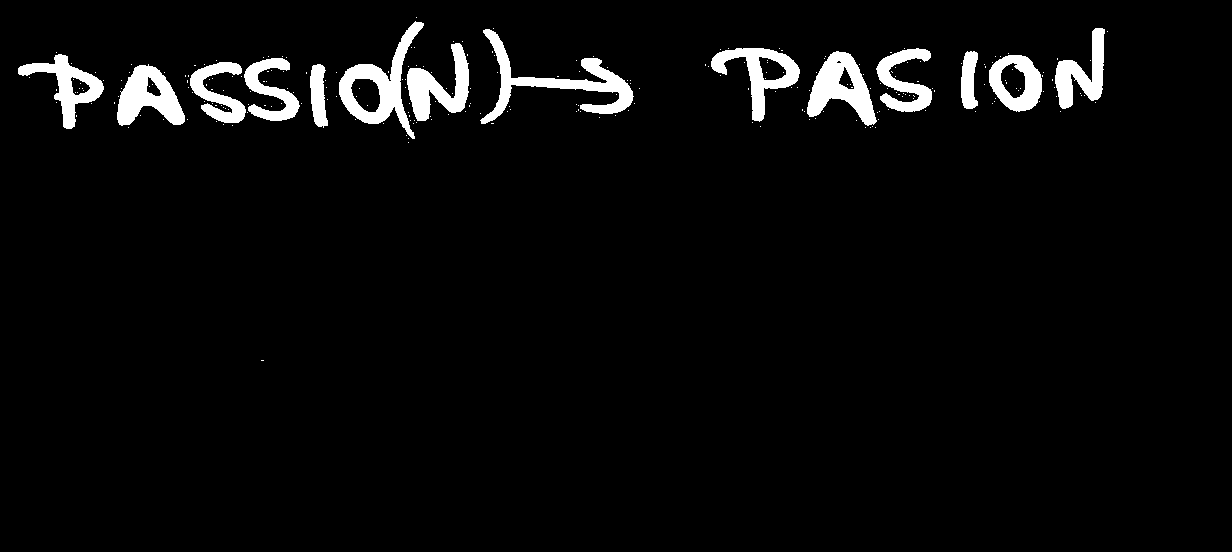 PASSIO(N) → PASION